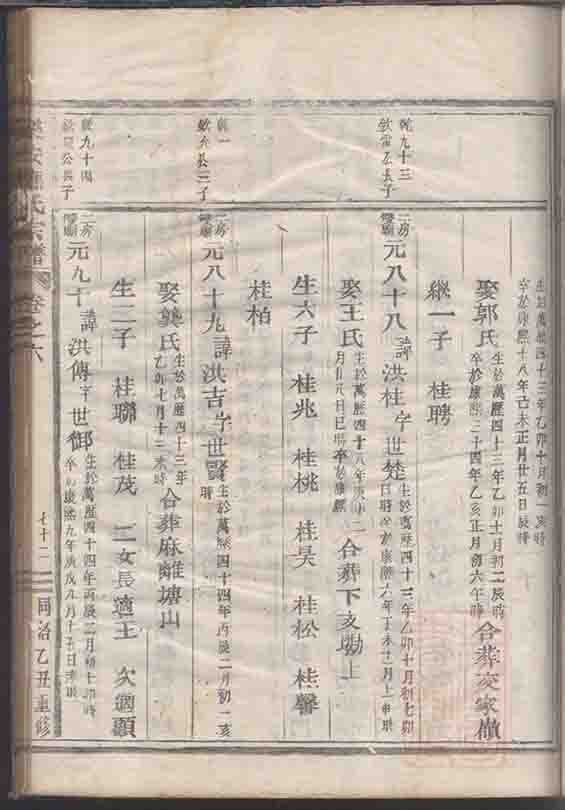 生於萬歷四十三年乙卯十月初一亥時
卒於康熙十八年己未正月廿五日辰時
娶郭氏 生於萬歷四十三年乙卯十月初二辰時 卒於康熙三十四年乙亥正月初六午時 合葬 家嶺
繼一子 桂聘
乾九十三 欽 公長子
二房 元八十八 諱洪桂字世楚 生於萬歷四十三年乙卯十月初七卯時 於康熙六年丁未十一月
娶王氏 生於萬歷四十八年 月廿八日巳時卒於康熙 合葬下亥坳上
生六子 桂兆 桂桃 桂昊 桂松 桂馨
桂柏
乾一 欽 長三子
二房 元八十九 諱洪吉字世賢 生於萬歷四十四年丙辰二月初一亥時
娶龔氏 生於萬歷四十三年乙卯七月十三未時 合葬麻離塘山
生二子 桂聯 桂茂 二女長適王 次適顧
乾九十四 欽 公長子
二房 元九十 諱洪傳字世御 生於萬歷四十四年丙辰二月初十卯時 卒於康熙九年庚戌九月十 日未時
氏宗譜 卷之六 七十二 同治乙丑重修